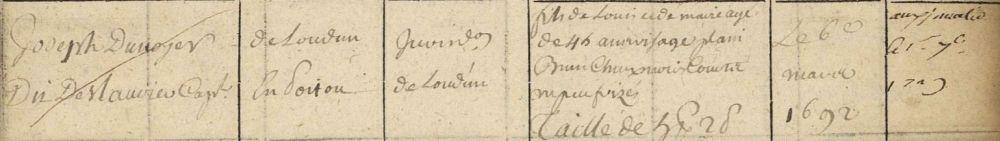 Joseph Dunoyer
Dit Deslauriers Capt.
de Loudun
En Poitou
Jurisdon
de Loudun
fils de Louis et de marie agé
de 45 ans visage plain
Brun Cheveux noir Courts
un peu frizez
Taille de 5
Le 6e
mars
1692
aux